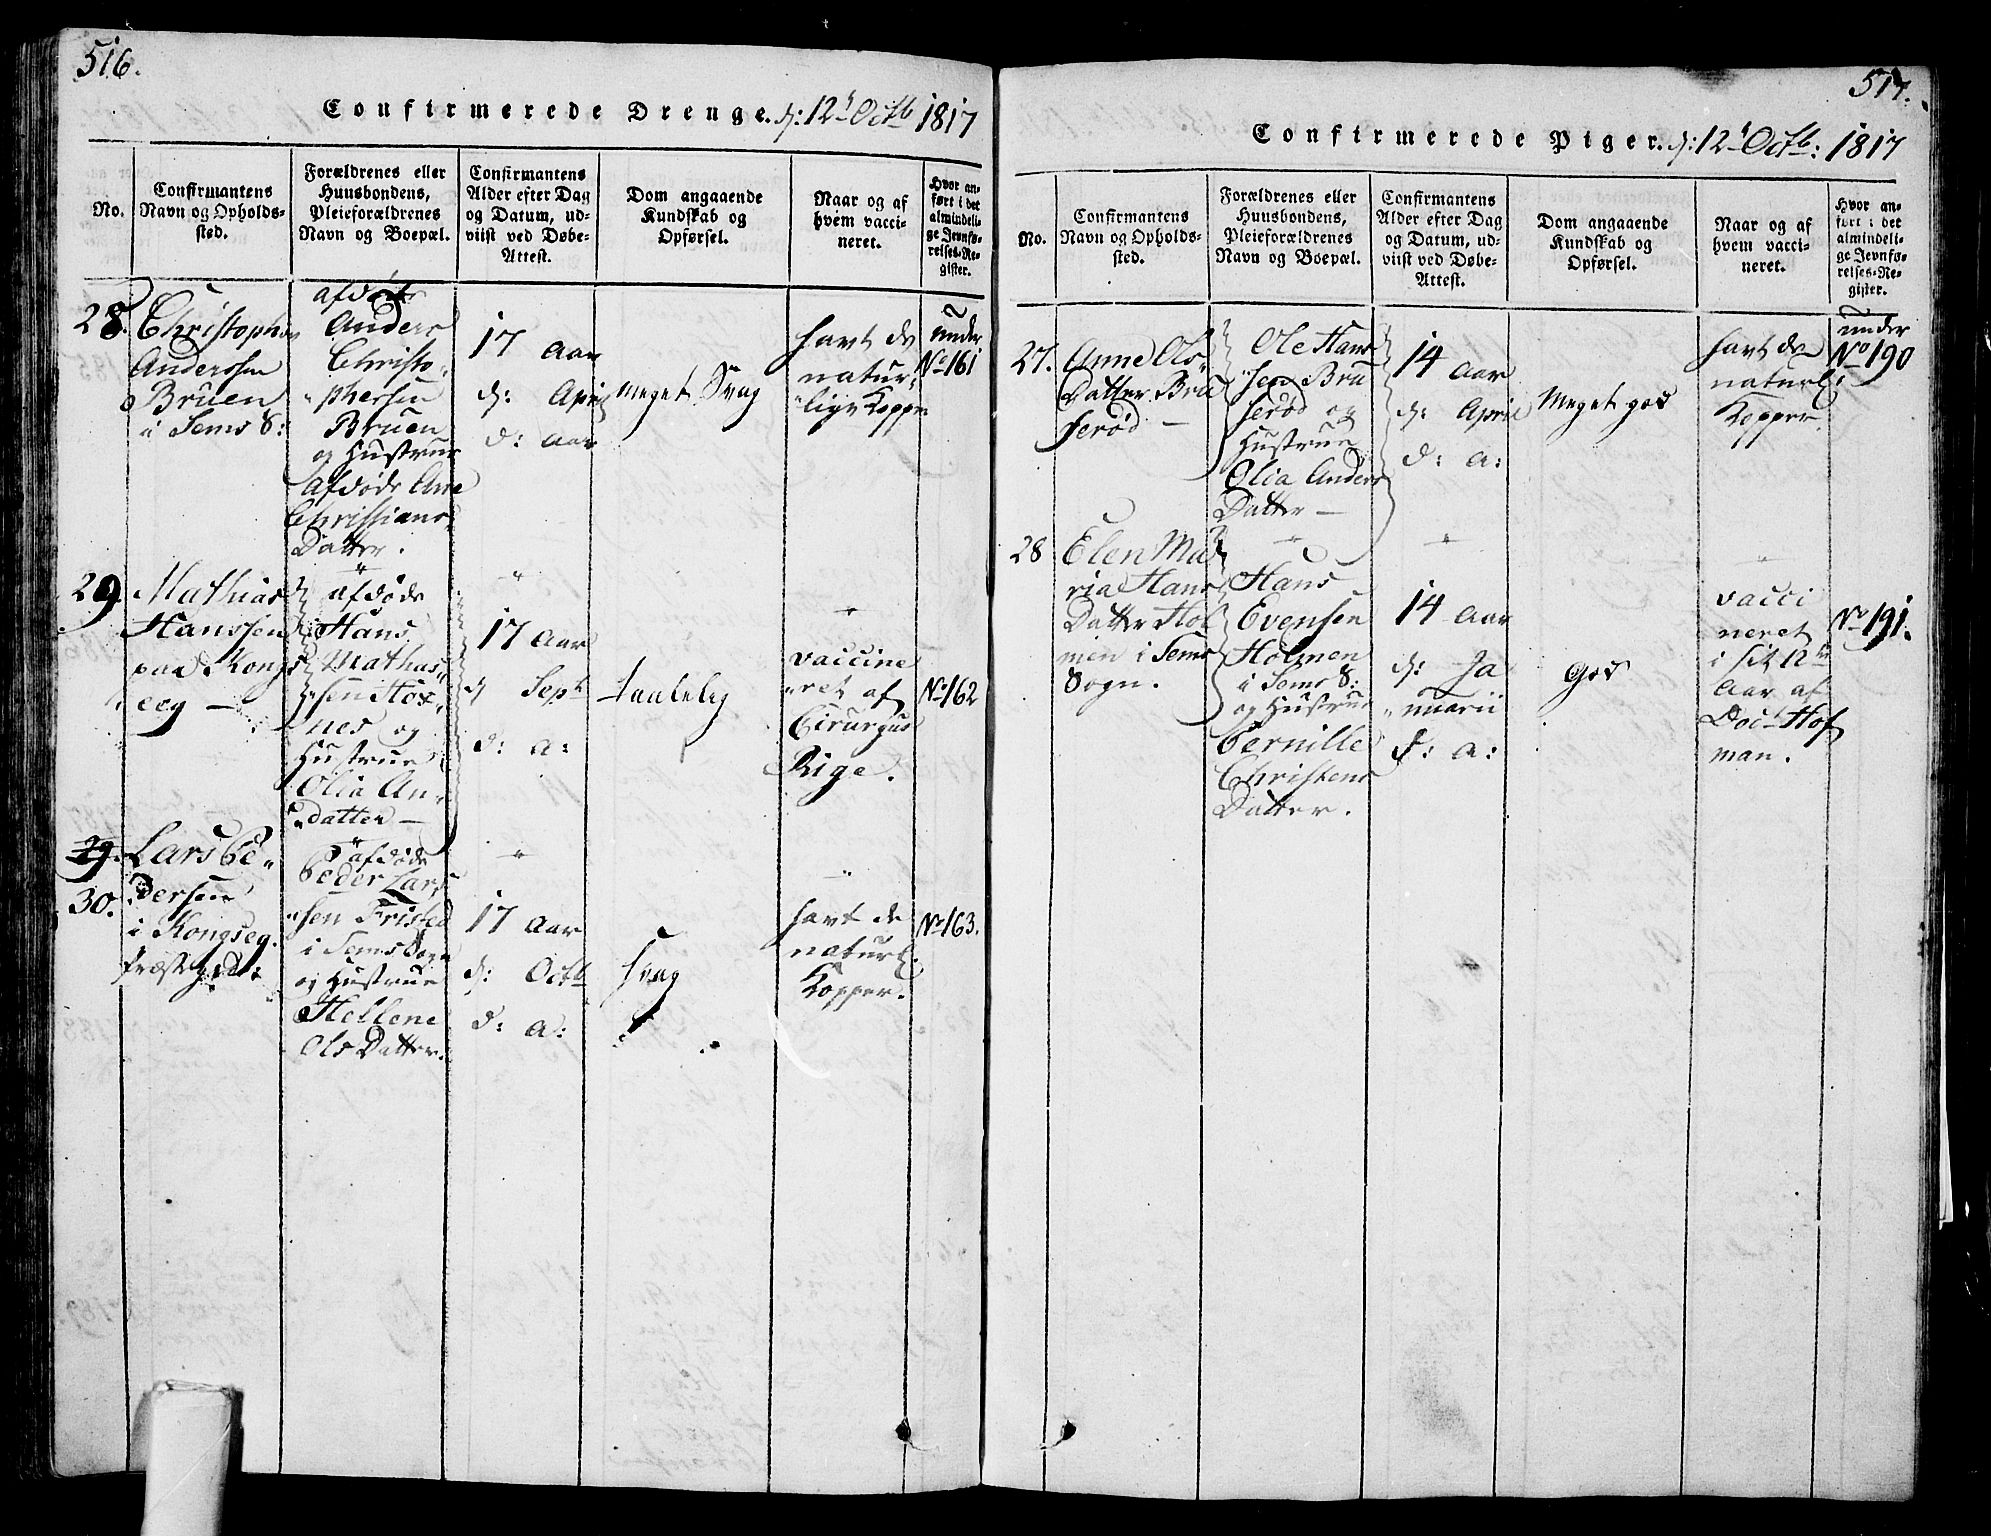 516.
Confirmerede Drenge. d: 12t Octb 1817
No.
Confirmantens
Navn og Opholds-
sted.
Forældrenes eller
Huusbondens,
Pleieforældrenes
Navn og Boepæl.
Confirmantens
Alder efter Dag
og Datum, ud-
viist ved Døbe-
Attest.
Dom angaaende
Kundskab og
Opførsel.
Naar og af
hvem vacci-
neret.
Hvor an-
ført i det
almindeli-
ge Jevnfø-
relses-Re-
gister.
28.
Christopher
Anderssen
Bruen
i Sems S:
afdøde
Anders
Christo-
phersen
Bruen
og Hustrue
afdøde Ane
Christians
Datter.
17 aar
d: April
d: aar
meget Svag
havt de
natur-
lige Kopper
under
No 161
29.
Mathias
Hanssen
paa Kongs
eeg
afdøde
Hans
Mathas-
sen Hox-
nes og
Hustrue
Olia An-
datter
17 aar
d Septr
d: a:
taalelig
vaccine
ret af
Cirurgus
Rige.
No 162
29.
30.
Lars Pe-
dersen
i Kongseg.
Præstegield
afdøde
Peder Lars
sen Fristed
i Sems Sogn
og Hustrue
Hellene
Ols Datter.
17 aar
d: Octb
d: a:
Svag
havt de
naturl.
Kopper.
No 163.
517.
Confirmerede Piger. d: 12t Octb: 1817
No.
Confirmantens
Navn og Opholds-
sted.
Forældrenes eller
Huusbondens,
Pleieforældrenes
Navn og Boepæl.
Confirmantens
Alder efter Dag
og Datum, ud-
viist ved Døbe-
Attest.
Dom angaaende
Kundskab og
Opførsel.
Naar og af
hvem vacci-
neret.
Hvor an-
ført i det
almindeli-
ge Jevnfø-
relses-Re-
gister.
27.
Anne Ols-
Datter Bru
serød
Ole Hans
sen Bru
serød og
Hustrue
Olia Anders
Datter
14 aar
d: April
d: a:
Meget god
havt de
naturl:
Kopper.
under
No 190
28
Elen Ma
ria Hans
Datter Hol
men i Sems
Sogn.
Hans
Evensen
Holmen
i Sems S:
og Hustrue
Pernille
Christens
Datter.
14 aar
d: Ja
nuarii
d: a:
God
vacci
neret
i sit 12te
Aar af
Doct Hof
man.
No 191.